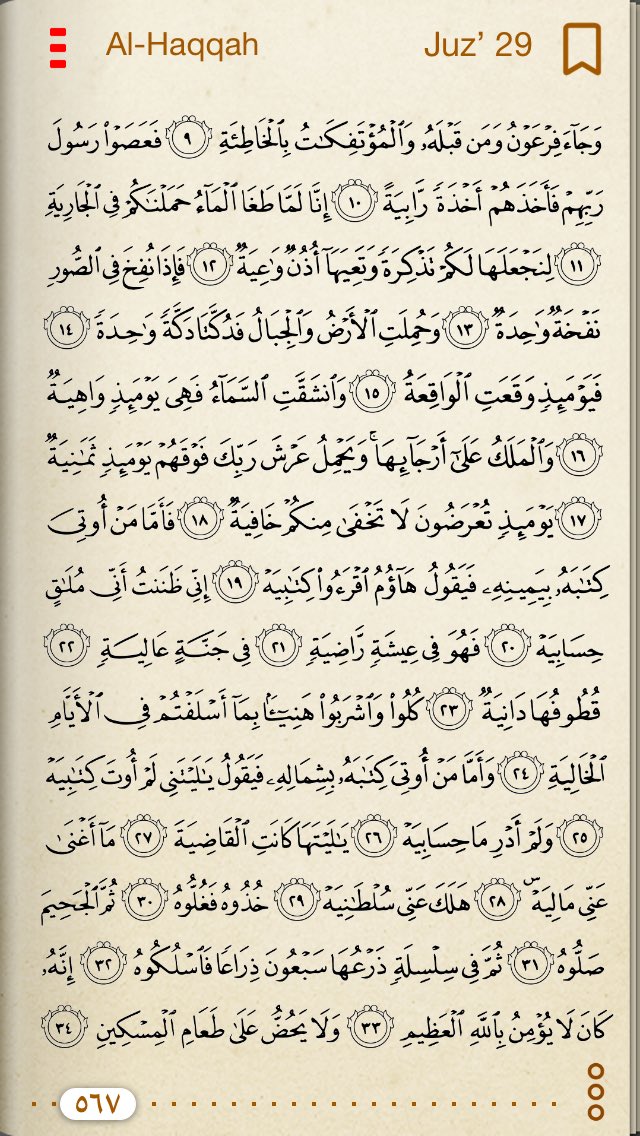 Al-Haqqah
Juz’ 29
وَجَآءَ فِرۡعَوۡنُ وَمَن قَبۡلَهُۥ وَٱلۡمُؤۡتَفِكَٰتُ بِٱلۡخَاطِئَةِ ٩ فَعَصَوۡاْ رَسُولَ
رَبِّهِمۡ فَأَخَذَهُمۡ أَخۡذَةٗ رَّابِيَةً ١٠ إِنَّا لَمَّا طَغَا ٱلۡمَآءُ حَمَلۡنَٰكُمۡ فِي ٱلۡجَارِيَةِ
١١ لِنَجۡعَلَهَا لَكُمۡ تَذۡكِرَةٗ وَتَعِيَهَآ أُذُنٞ وَٰعِيَةٞ ١٢ فَإِذَا نُفِخَ فِي ٱلصُّورِ
نَفۡخَةٞ وَٰحِدَةٞ ١٣ وَحُمِلَتِ ٱلۡأَرۡضُ وَٱلۡجِبَالُ فَدُكَّتَا دَكَّةٗ وَٰحِدَةٗ ١٤
فَيَوۡمَئِذٖ وَقَعَتِ ٱلۡوَاقِعَةُ ١٥ وَٱنشَقَّتِ ٱلسَّمَآءُ فَهِيَ يَوۡمَئِذٖ وَاهِيَةٞ
١٦ وَٱلۡمَلَكُ عَلَىٰٓ أَرۡجَآئِهَاۚ وَيَحۡمِلُ عَرۡشَ رَبِّكَ فَوۡقَهُمۡ يَوۡمَئِذٖ ثَمَٰنِيَةٞ
١٧ يَوۡمَئِذٖ تُعۡرَضُونَ لَا تَخۡفَىٰ مِنكُمۡ خَافِيَةٞ ١٨ فَأَمَّا مَنۡ أُوتِيَ
كِتَٰبَهُۥ بِيَمِينِهِۦ فَيَقُولُ هَآؤُمُ ٱقۡرَءُواْ كِتَٰبِيَهۡ ١٩ إِنِّي ظَنَنتُ أَنِّي مُلَٰقٍ
حِسَابِيَهۡ ٢٠ فَهُوَ فِي عِيشَةٖ رَّاضِيَةٖ ٢١ فِي جَنَّةٍ عَالِيَةٖ ٢٢
قُطُوفُهَا دَانِيَةٞ ٢٣ كُلُواْ وَٱشۡرَبُواْ هَنِيٓـَٔۢا بِمَآ أَسۡلَفۡتُمۡ فِي ٱلۡأَيَّامِ
ٱلۡخَالِيَةِ ٢٤ وَأَمَّا مَنۡ أُوتِيَ كِتَٰبَهُۥ بِشِمَالِهِۦ فَيَقُولُ يَٰلَيۡتَنِي لَمۡ أُوتَ كِتَٰبِيَهۡ
٢٥ وَلَمۡ أَدۡرِ مَا حِسَابِيَهۡ ٢٦ يَٰلَيۡتَهَا كَانَتِ ٱلۡقَاضِيَةَ ٢٧ مَآ أَغۡنَىٰ
عَنِّي مَالِيَهۡۜ ٢٨ هَلَكَ عَنِّي سُلۡطَٰنِيَهۡ ٢٩ خُذُوهُ فَغُلُّوهُ ٣٠ ثُمَّ ٱلۡجَحِيمَ
صَلُّوهُ ٣١ ثُمَّ فِي سِلۡسِلَةٖ ذَرۡعُهَا سَبۡعُونَ ذِرَاعٗا فَٱسۡلُكُوهُ ٣٢ إِنَّهُۥ
كَانَ لَا يُؤۡمِنُ بِٱللَّهِ ٱلۡعَظِيمِ ٣٣ وَلَا يَحُضُّ عَلَىٰ طَعَامِ ٱلۡمِسۡكِينِ ٣٤
٥٦٧